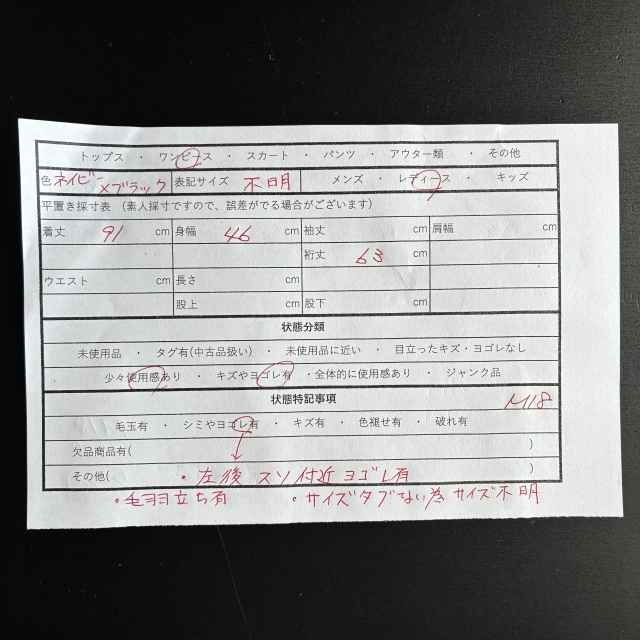 トップス ・ ワンピース ・ スカート ・ パンツ ・ アウター類 ・ その他
色 ネイビー×ブラック 表記サイズ 不明 メンズ ・ レディース ・ キッズ
平置き採寸表 (素人採寸ですので、誤差がでる場合がございます)
着丈 91 cm 身幅 46 cm 袖丈 cm 肩幅 cm
裄丈 63 cm
ウエスト cm 長さ cm
股上 cm 股下 cm
状態分類
未使用品 ・ タグ有(中古品扱い) ・ 未使用品に近い ・ 目立ったキズ・ヨゴレなし
少々使用感あり ・ キズやヨゴレ有 ・全体的に使用感あり ・ ジャンク品
状態特記事項 M18
毛玉有 ・ シミやヨゴレ有 ・ キズ有 ・ 色褪せ有 ・ 破れ有
欠品商品有( )
その他( ・左後 スソ付近 ヨゴレ有 )
・毛羽立ち有 ・サイズタブない為 サイズ不明